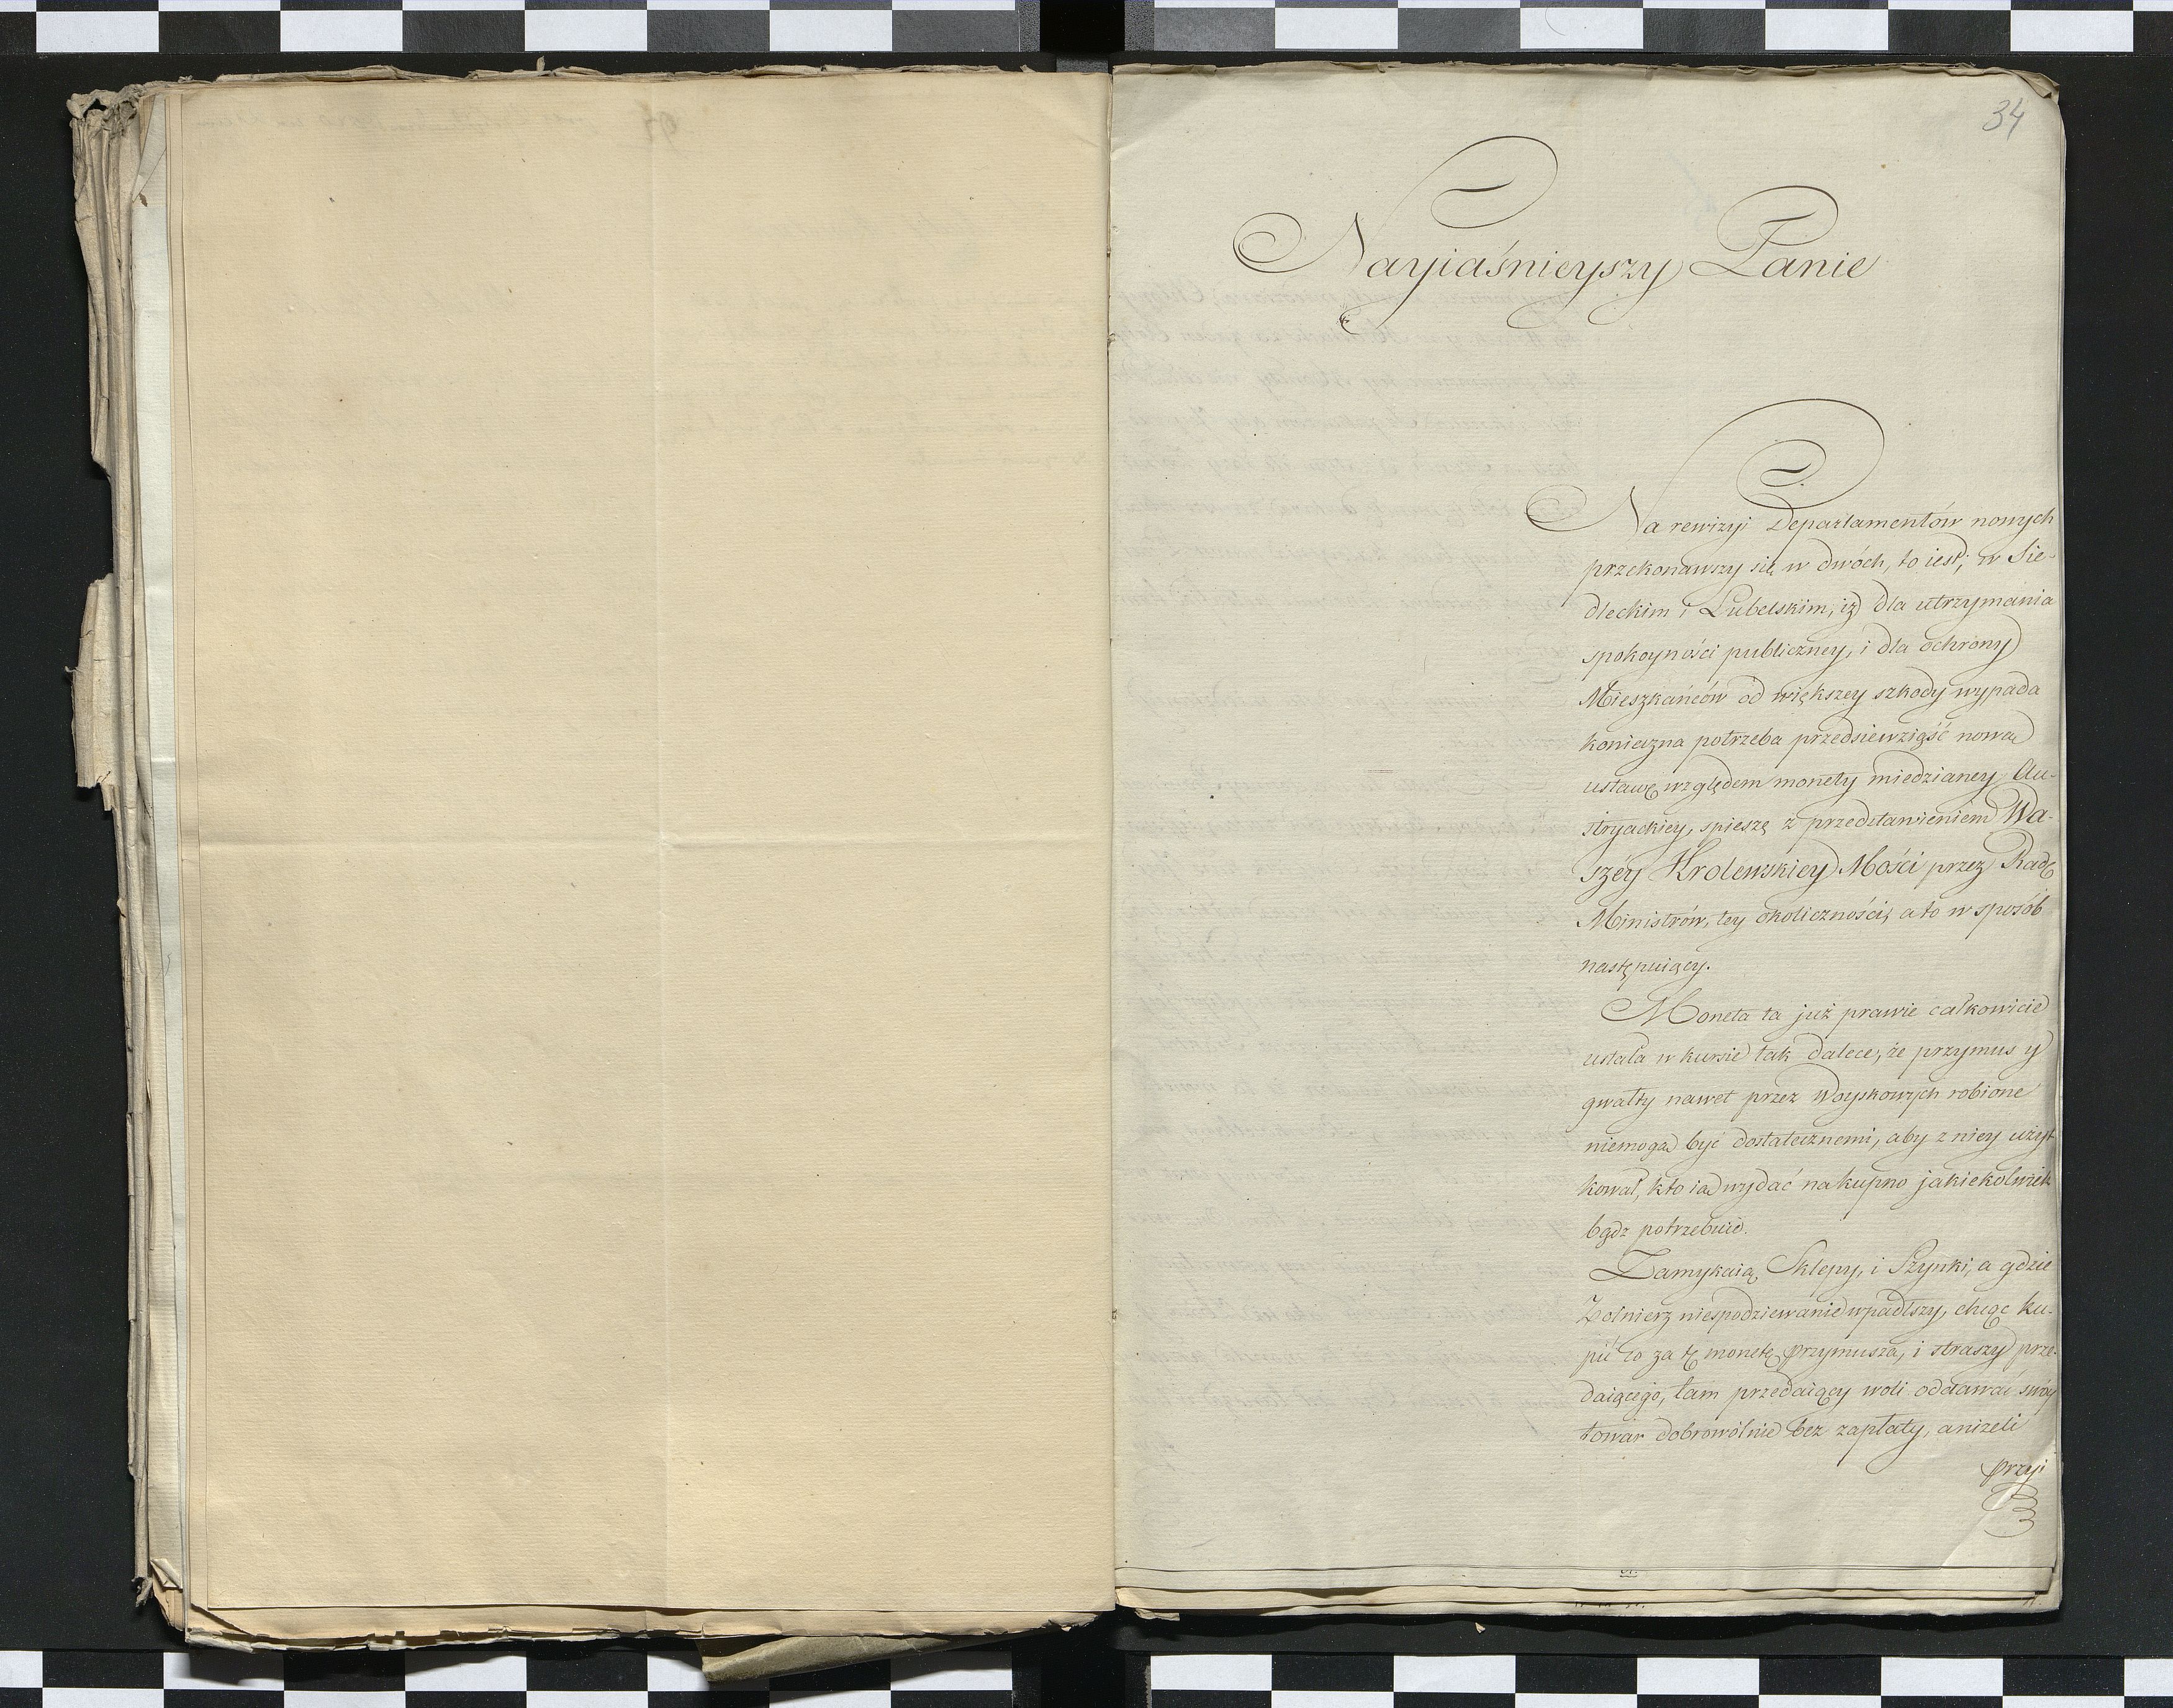 34
Nayiaśnieyszy Panie
Na rewizyi Departamentów nowych
przekonawszy się w dwóch, to iest, w Sie-
dleckim i Lubelskim, iż dla utrzymania
spokoyności publiczney, i dla ochrony
Mieszkańców od większey szkody wypada
konieczna potrzeba przedsiewziąść nową
ustawę względem monety miedzianey Au-
stryackiey, spieszę z przedstawieniem Wa-
széy Krolewskiey Mości przez Radę
Ministrów, tey okoliczności, a to w sposób
następuiący.
Moneta ta już prawie całkowicie
ustała w kursie tak dalece, że przymus y
gwałty nawet przez Woyskowych robione
niemogą być dostatecznemi, aby z niey użyt
kował, kto ią wydać na kupno jakiekolwiek
bądz potrzebuie.
Zamykaią Sklepy, i Szynki, a gdzie
Zołnierz niespodziewanie wpadłszy, chcąc ku-
pić co za tę monetę przymusza, i straszy prze-
daiącego, tam przedaiący woli oddawać swóy
towar dobrowólnie bez zapłaty, aniżeli
przyi